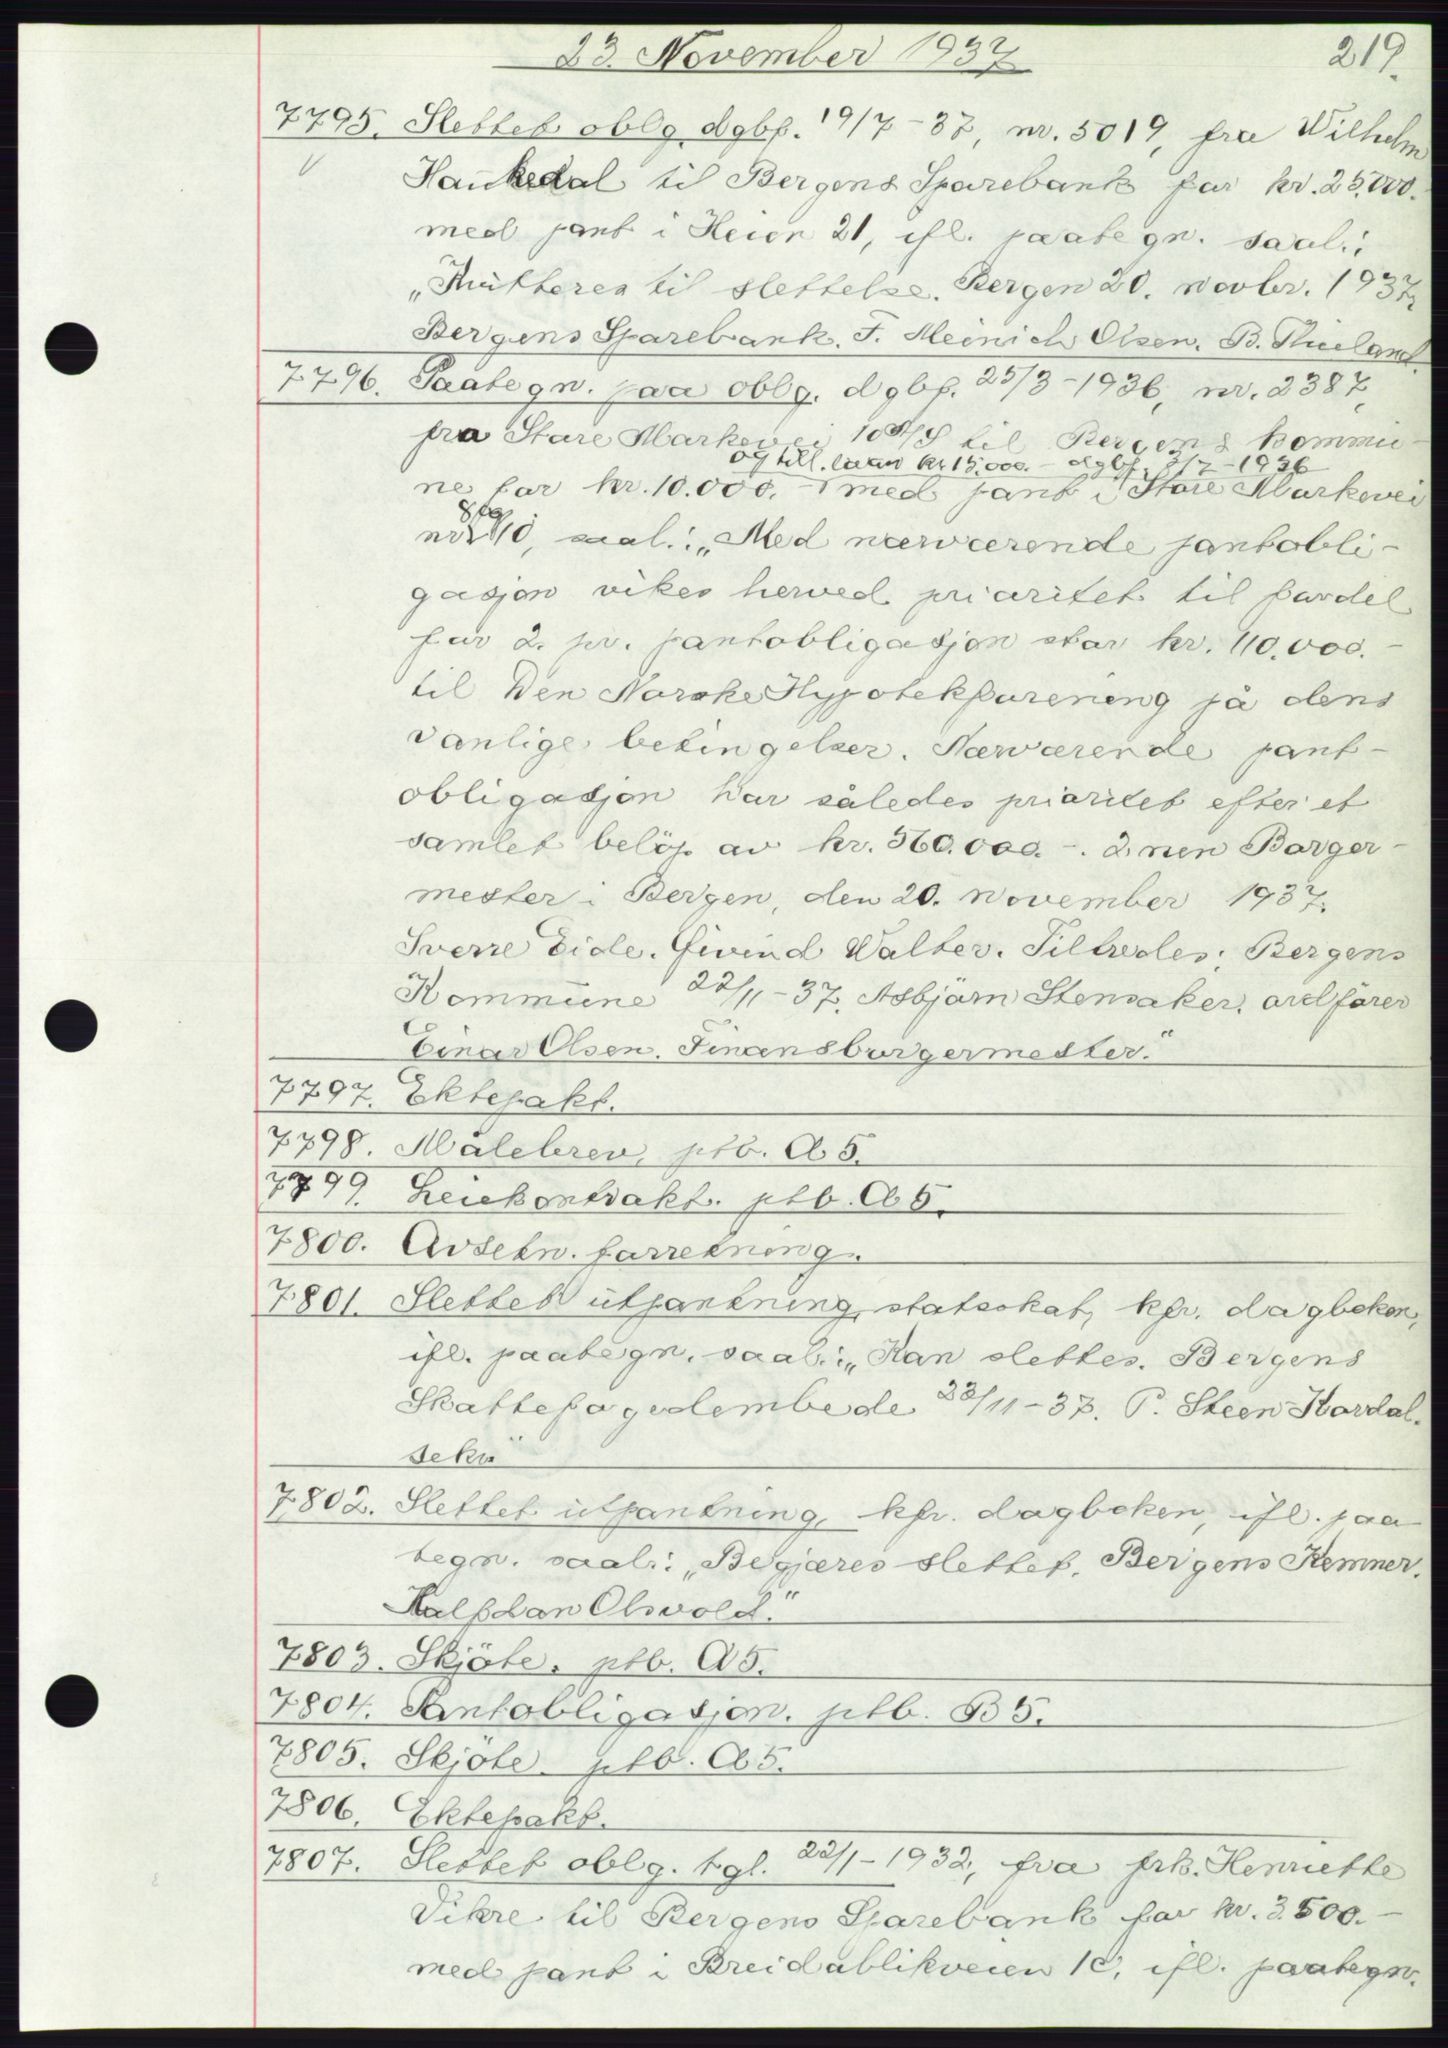 23. November 1937
219.
7795. Slettet oblg. dgbf. 19/7-37, nr. 5019, fra Wilhelm
Haukedal til Bergens Sparebank for kr. 25.000.
med pant i Heien 21, ifl. paategn. saal.:
„Kvitteres til slettelse. Bergen 20. novbr. 1937,
Bergens Sparebank. F. Meinich Olsen. B.
7796. Paategn. paa oblg. dgbf. 25/3-1936, nr. 2387,
fra Store Markevei 10 A/S til Bergens kommu-
og till. laan kr 15.000.- dgbf. 3/7-1936
ne for kr. 10.000.- med pant i Store Markevei
nr 8 og 10, saal.: „Med nærværende pantobli-
gasjon vikes herved prioritet til fordel
for 2. pr. pantobligasjon stor kr. 110.000.-
til Den Norske Hypotekforening på dens
vanlige betingelser. Nærværende pant-
obligasjon har således prioritet efter et
samlet beløp av kr. 560.000.-. 2nen Borger-
mester i Bergen, den 20. november 1937.
Sverre Eide. Øivind Walter. Tiltredes: Bergens
Kommune 22/11-37. Asbjörn Stensaker. ordförer
Einar Olsen. Finansborgermester."
7797. Ektepakt.
7798. Målebrev, ptb. A 5.
7799. Leiekontrakt. ptb. A 5.
7800. Avsetn. forretning.
7801. Slettet utpantning, statsskat, kfr. dagboken,
ifl. paategn. saal.: „Kan slettes. Bergens
Skattefogedembede 23/11-37. P. Steen Hordal.
sekr"
7802. Slettet utpantning, kfr. dagboken, ifl. paa
tegn. saal.: „Begjæres slettet. Bergens Kemner.
Halfdan Olsvold."
7803. Skjöte. ptb. A 5.
7804. Pantobligasjon. ptb. B 5.
7805. Skjöte. ptb. A 5.
7806. Ektepakt.
7807. Slettet oblg. tgl. 22/1-1932, fra frk. Henriette
Vikre til Bergens Sparebank for kr. 3.500.-
med pant i Breidablikveien 1c, ifl. paategn.